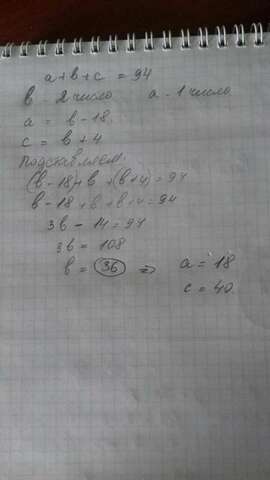 a + b + c = 94
b - 2 число a - 1 число
a = b - 18
c = b + 4
Подставляем:
(b - 18) + b + (b + 4) = 94
b - 18 + b + b + 4 = 94
3b - 14 = 94
3b = 108
b = 36 => a = 18
c = 40